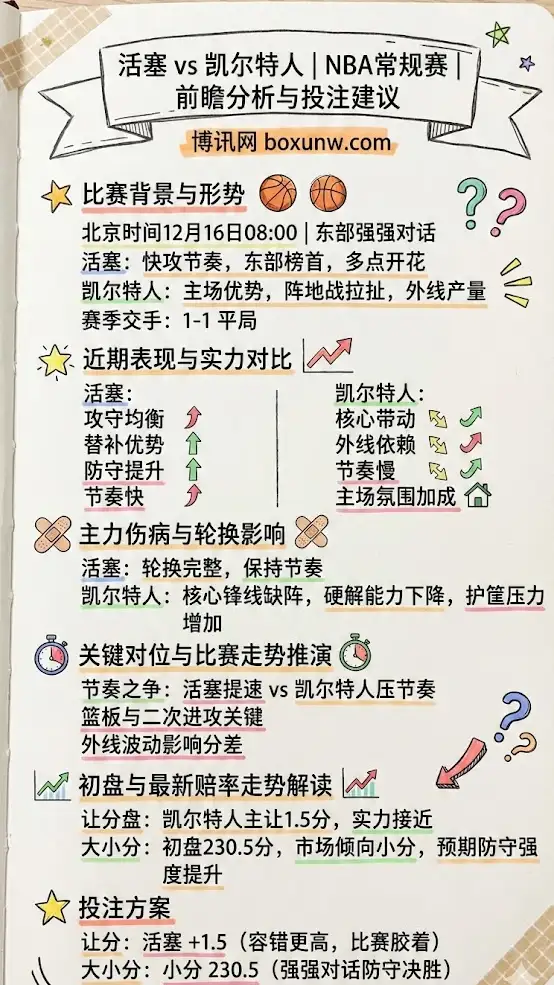 活塞 vs 凯尔特人 | NBA常规赛 |
前瞻分析与投注建议
博讯网 boxunw.com
比赛背景与形势
北京时间12月16日08:00 | 东部强强对话
活塞：快攻节奏，东部榜首，多点开花
凯尔特人：主场优势，阵地战拉扯，外线产量
赛季交手：1-1 平局
近期表现与实力对比
活塞：
攻守均衡
替补优势
防守提升
节奏快
凯尔特人：
核心带动
外线依赖
节奏慢
主场氛围加成
主力伤病与轮换影响
活塞：轮换完整，保持节奏
凯尔特人：核心锋线缺阵，硬解能力下降，护筐压力
增加
关键对位与比赛走势推演
节奏之争：活塞提速 vs 凯尔特人压节奏
篮板与二次进攻关键
外线波动影响分差
初盘与最新赔率走势解读
让分盘：凯尔特人主让1.5分，实力接近
大小分：初盘230.5分，市场倾向小分，预期防守强
度提升
投注方案
让分：活塞 +1.5（容错更高，比赛胶着）
大小分：小分 230.5（强强对话防守决胜）